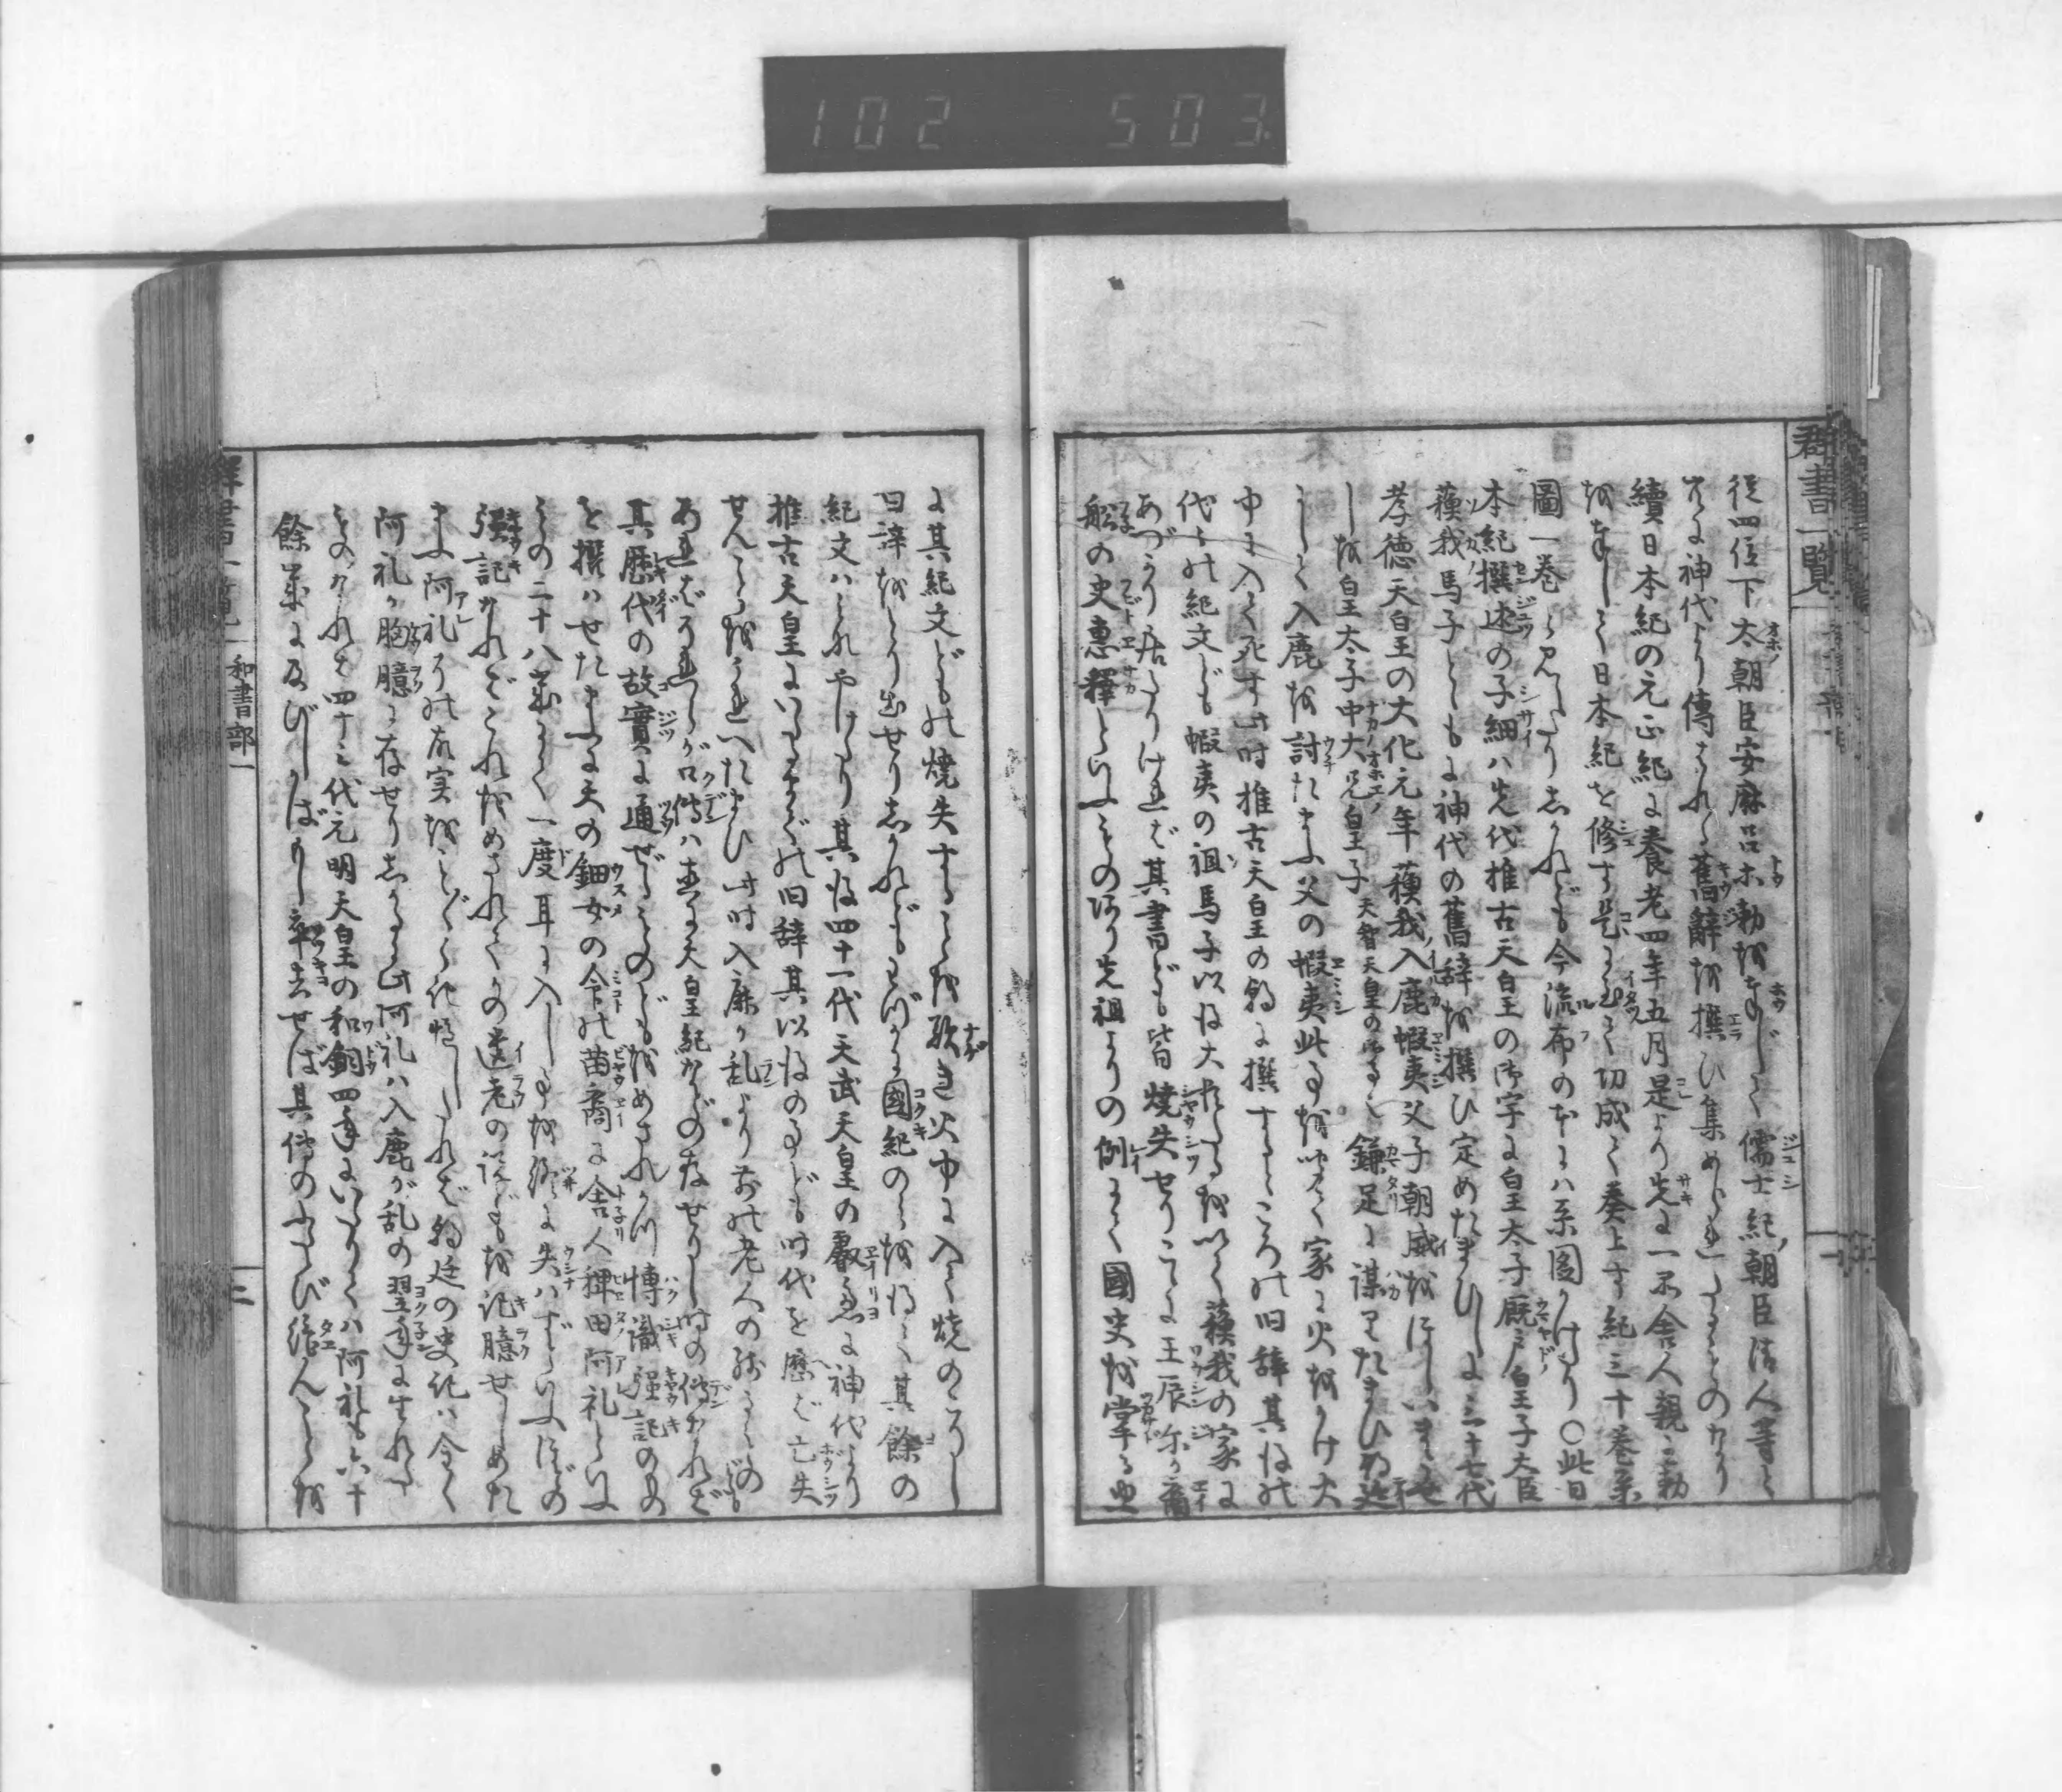 102 503
群書一覧
従四位下太朝臣安麻呂ホ勅を奉じて儒士紀朝臣清人等と
共に神代より傳はれる舊辭を撰ひ集めらたるものなり
續日本紀の元正紀に養老四年五月是より先に一品舎人親王勅
を奉して日本紀を修す是に至て功成て奏上す紀三十巻系
圖一巻と見えたりしかれども今流布の本には系圖かけたり〇此日
本紀撰述の子細ハ先代推古天皇の御宇に皇太子厩戸皇子大臣
蘓我馬子ともに神代の舊辞を撰ひ定めたまひしに三十七代
孝徳天皇の大化元年蘓我入鹿蝦夷父子朝威を
しを皇太子中大兄皇子天智天皇の御事也鎌足と謀りたまひ
して入鹿を討たまふ父の蝦夷此事を聞て家に火をかけ火
中に入て死す此時推古天皇の朝に撰するところの旧辞其後の
代々の紀文ども蝦夷の祖馬子以後大臣たるを以て蘓我の家に
あづかり居たりければ其書ども皆焼失せりこゝに王辰尓が裔
船の史惠釋といふもの先祖よりの例にて國史を掌る
に其紀文どもの焼失することを歎き火中に入て焼のこりし
旧辞をとり出せりしかれどもわづかに國紀のみを得て其餘の
紀文ハみなやけたり其後四十一代天武天皇の叡慮に神代より
推古天皇にいたるまでの旧辞其以後の事ども時代を歴ば亡失
せんことをうれへたまひ此時入鹿が乱より前の老人の残るもの
あれども口傳ハ直に天皇紀などの存せりし時の傳なれど
其歴代の故實に通ぜるものどもをめされかつ博識強記のもの
を撰ハせたまふに天の鈿女の命の苗裔に舎人稗田阿礼といふ
もの二十八歳にて一度耳に入し事を終に失ハずといふほどの
強記なればこれをめされてかの遺老の説どもを記臆せしめた
まふ阿礼その故実をことごとく記憶したれば朝廷の史記ハ全く
阿礼が胸臆に存せりしかるに此阿礼ハ入鹿が乱の翌年に生れた
ものなれば四十三代元明天皇の和銅四年にいたりてハ阿礼も六十
餘歳に及びしかばもし卒去せば其傳のふたゝび絶んことを
群書一覧
和書部一
三